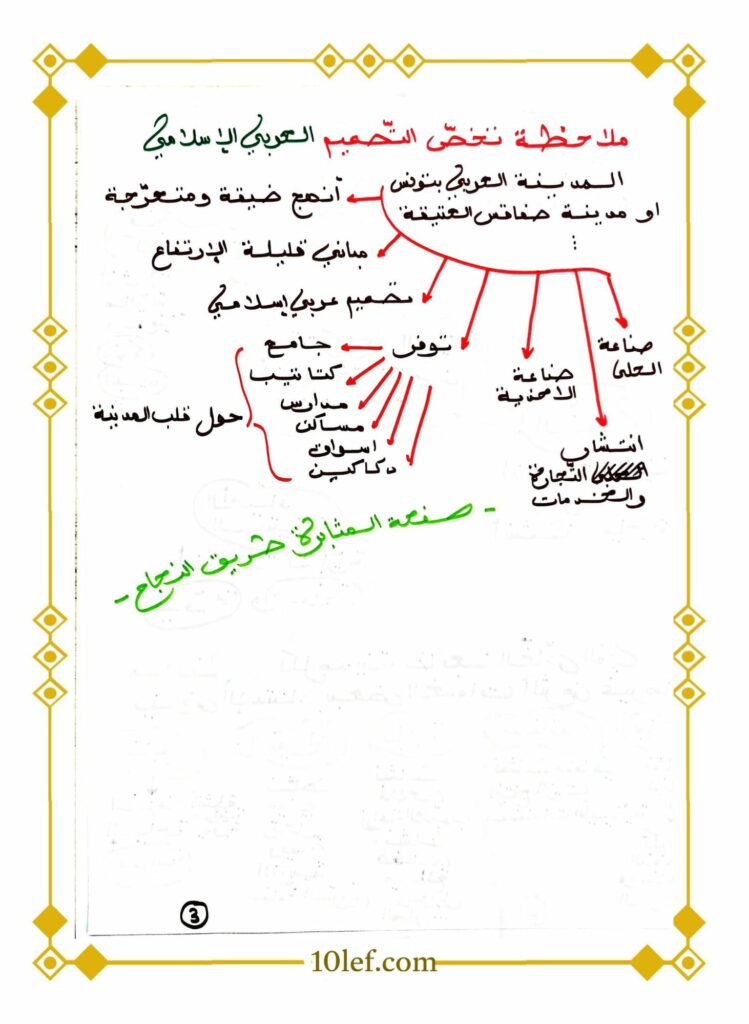 ملاحظة تخصّ التّصميم العربي الإسلامي
المدينة العربي بتونس
او مدينة صفاقس العتيقة
أنهج ضيقة ومتعرّجة
مباني قليلة الإرتفاع
تصميم عربي إسلامي
توفر
جامع
كتاتيب
مدارس
مساكن
اسواق
دكاكين
حول قلب المدينة
صناعة
الأحذية
انتشار
التّجارة
والخدمات
صناعة
الحلي
- صفحة المثابرة طريق النجاح -
3
10lef.com